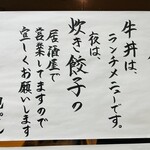 牛丼は、
ランチメニューです。
夜は、
炊き餃子の
居酒屋で
営業してますので
宜しくお願いします